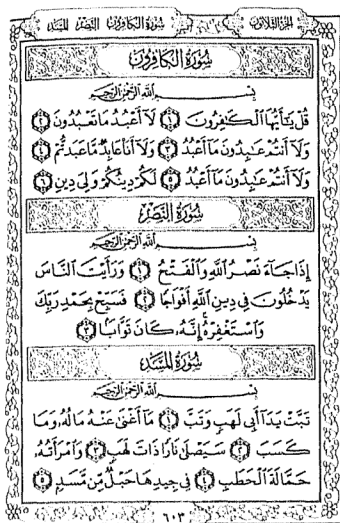 سُورَةُ الكَافِرُونَ النَّصْرِ المَسَدِ
الجُزْءُ الثَّلَاثُونَ
سُورَةُ الْكَافِرُونَ
بِسْمِ اللَّهِ الرَّحْمَٰنِ الرَّحِيمِ
قُلْ يَٰٓأَيُّهَا ٱلْكَٰفِرُونَ ١ لَآ أَعْبُدُ مَا تَعْبُدُونَ ٢
وَلَآ أَنتُمْ عَٰبِدُونَ مَآ أَعْبُدُ ٣ وَلَآ أَنَا۠ عَابِدٌ مَّا عَبَدتُّمْ ٤
وَلَآ أَنتُمْ عَٰبِدُونَ مَآ أَعْبُدُ ٥ لَكُمْ دِينُكُمْ وَلِىَ دِينِ ٦
سُورَةُ النَّصْرِ
بِسْمِ اللَّهِ الرَّحْمَٰنِ الرَّحِيمِ
إِذَا جَآءَ نَصْرُ ٱللَّهِ وَٱلْفَتْحُ ١ وَرَأَيْتَ ٱلنَّاسَ
يَدْخُلُونَ فِى دِينِ ٱللَّهِ أَفْوَاجًا ٢ فَسَبِّحْ بِحَمْدِ رَبِّكَ
وَٱسْتَغْفِرْهُ ۚ إِنَّهُۥ كَانَ تَوَّابًۢا ٣
سُورَةُ المَسَدِ
بِسْمِ اللَّهِ الرَّحْمَٰنِ الرَّحِيمِ
تَبَّتْ يَدَآ أَبِى لَهَبٍ وَتَبَّ ١ مَآ أَغْنَىٰ عَنْهُ مَالُهُۥ وَمَا
كَسَبَ ٢ سَيَصْلَىٰ نَارًا ذَاتَ لَهَبٍ ٣ وَٱمْرَأَتُهُۥ
حَمَّالَةَ ٱلْحَطَبِ ٤ فِى جِيدِهَا حَبْلٌ مِّن مَّسَدٍۭ ٥
٦٠٣